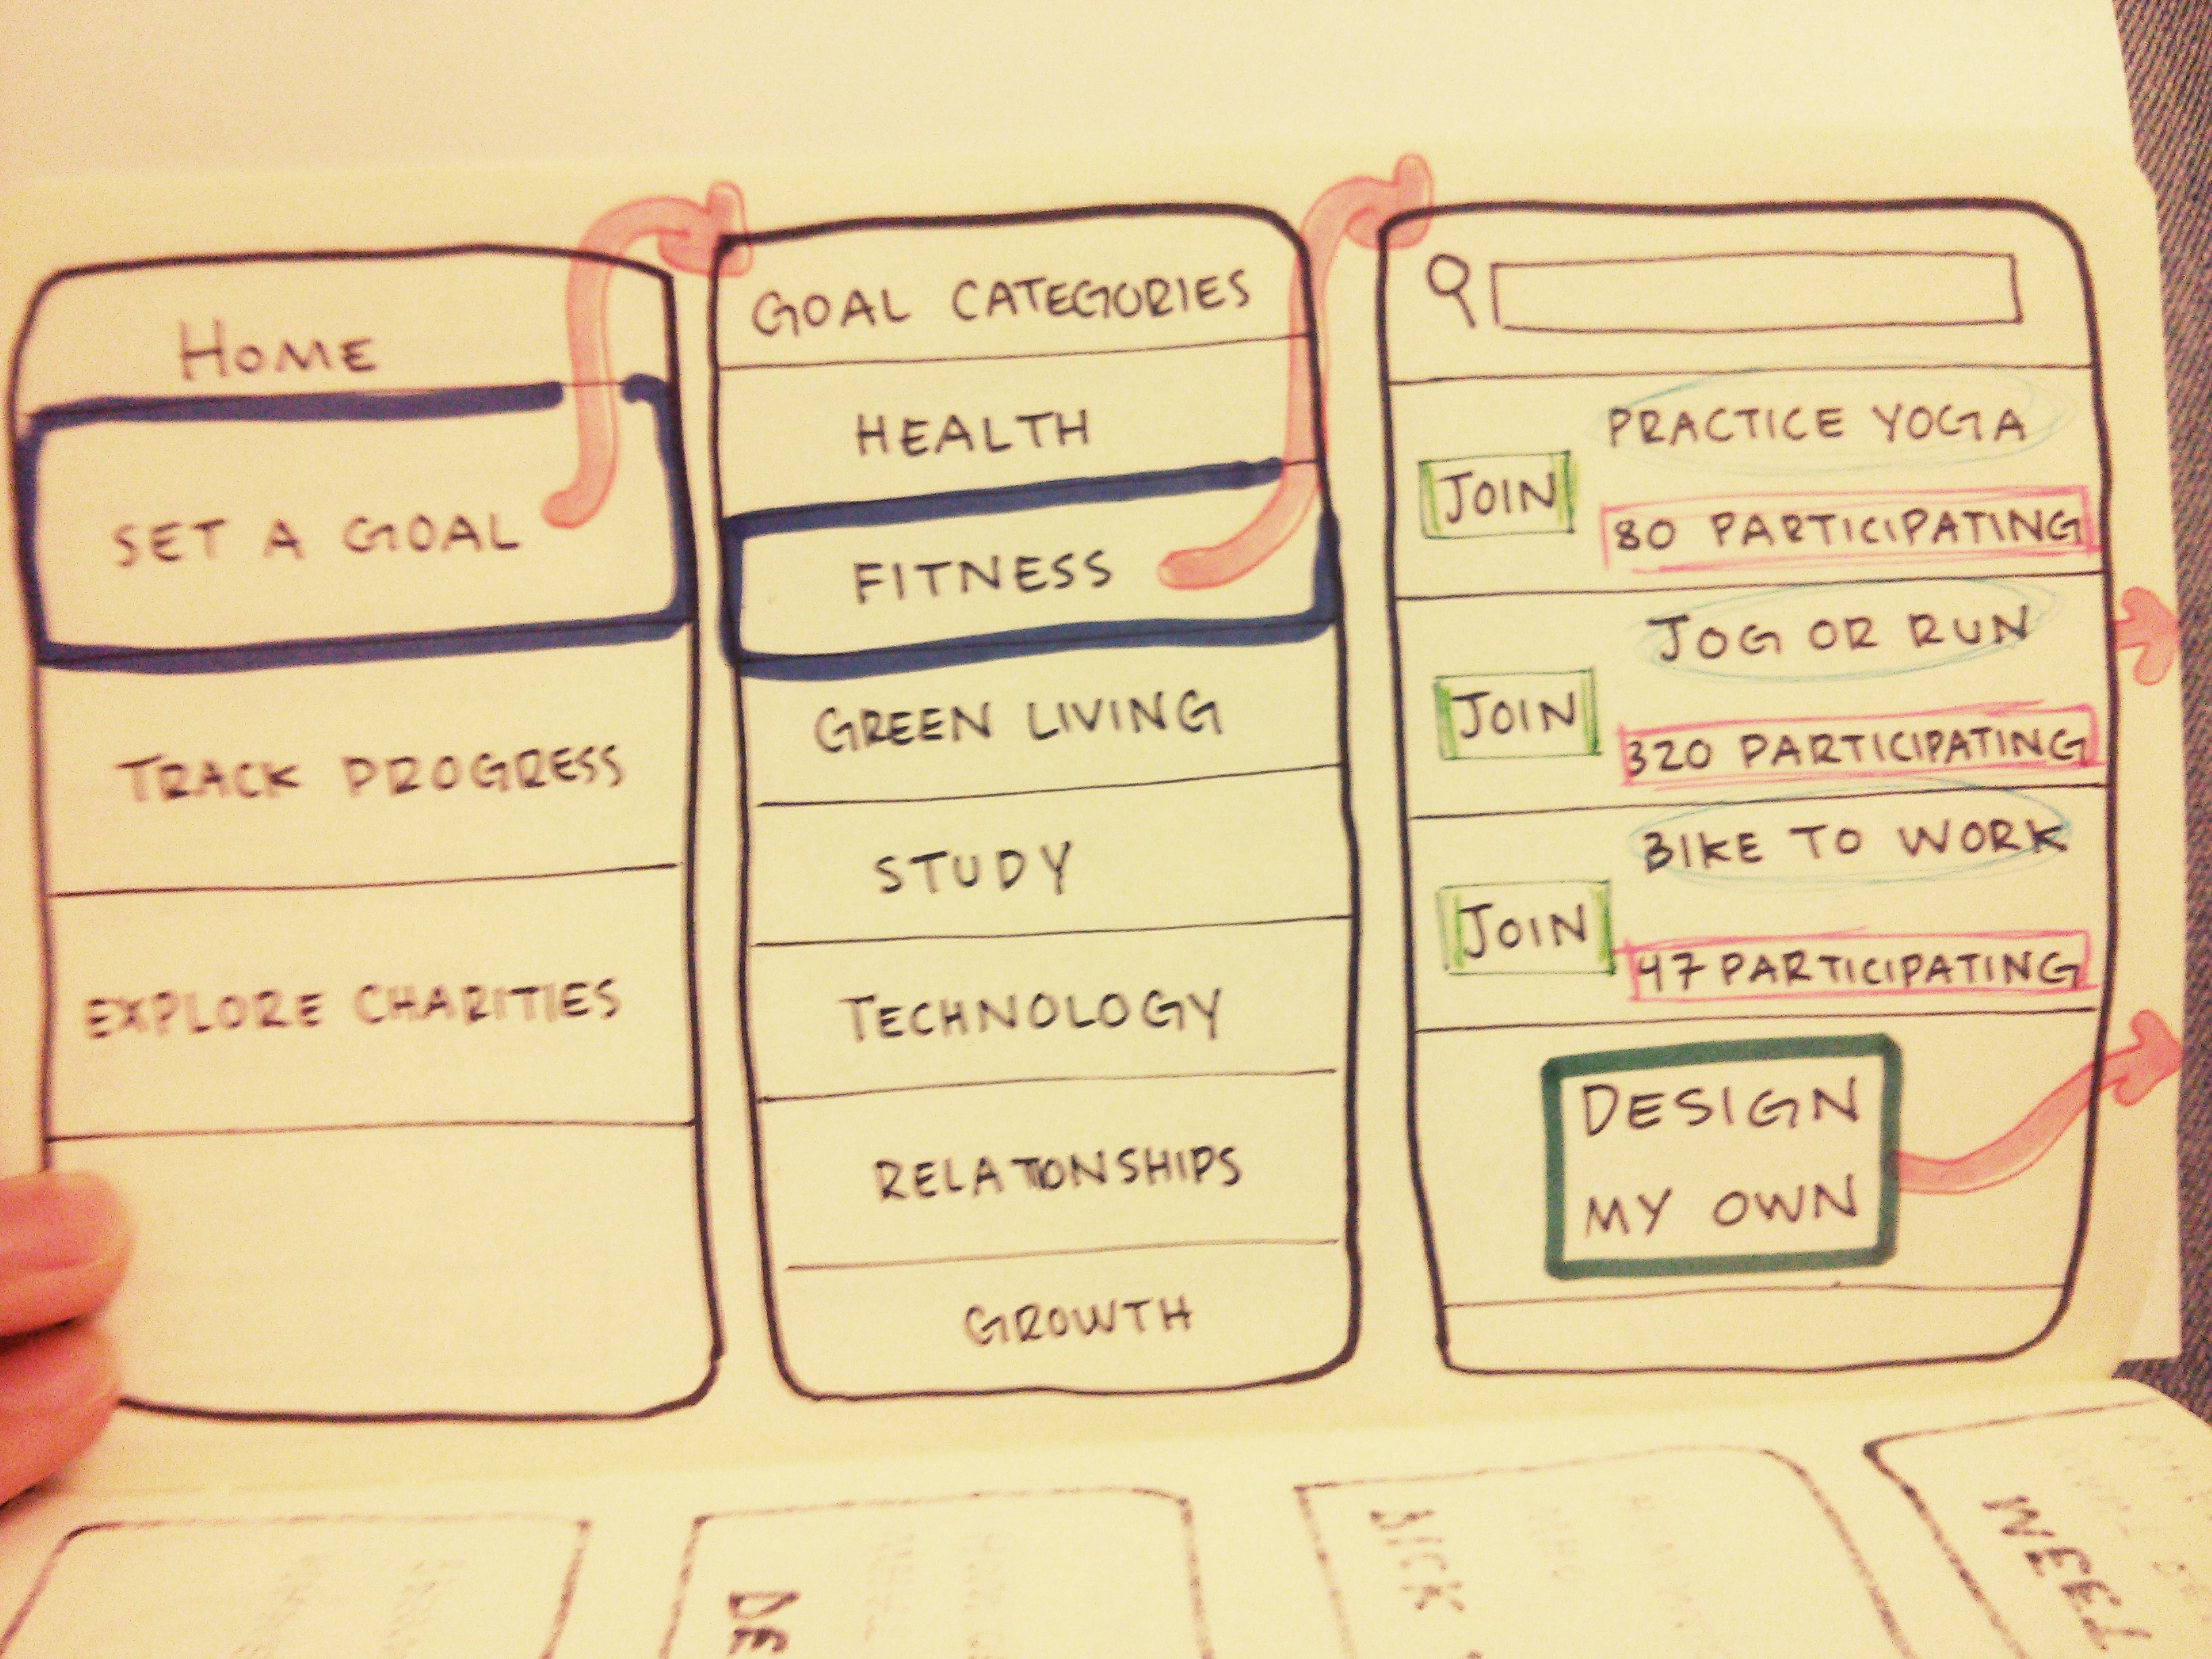 HOME
SET A GOAL
TRACK PROGRESS
EXPLORE CHARITIES
GOAL CATEGORIES
HEALTH
FITNESS
GREEN LIVING
STUDY
TECHNOLOGY
RELATIONSHIPS
GROWTH
PRACTICE YOGA
JOIN
80 PARTICIPATING
JOG OR RUN
JOIN
320 PARTICIPATING
BIKE TO WORK
JOIN
47 PARTICIPATING
DESIGN
MY OWN
DE